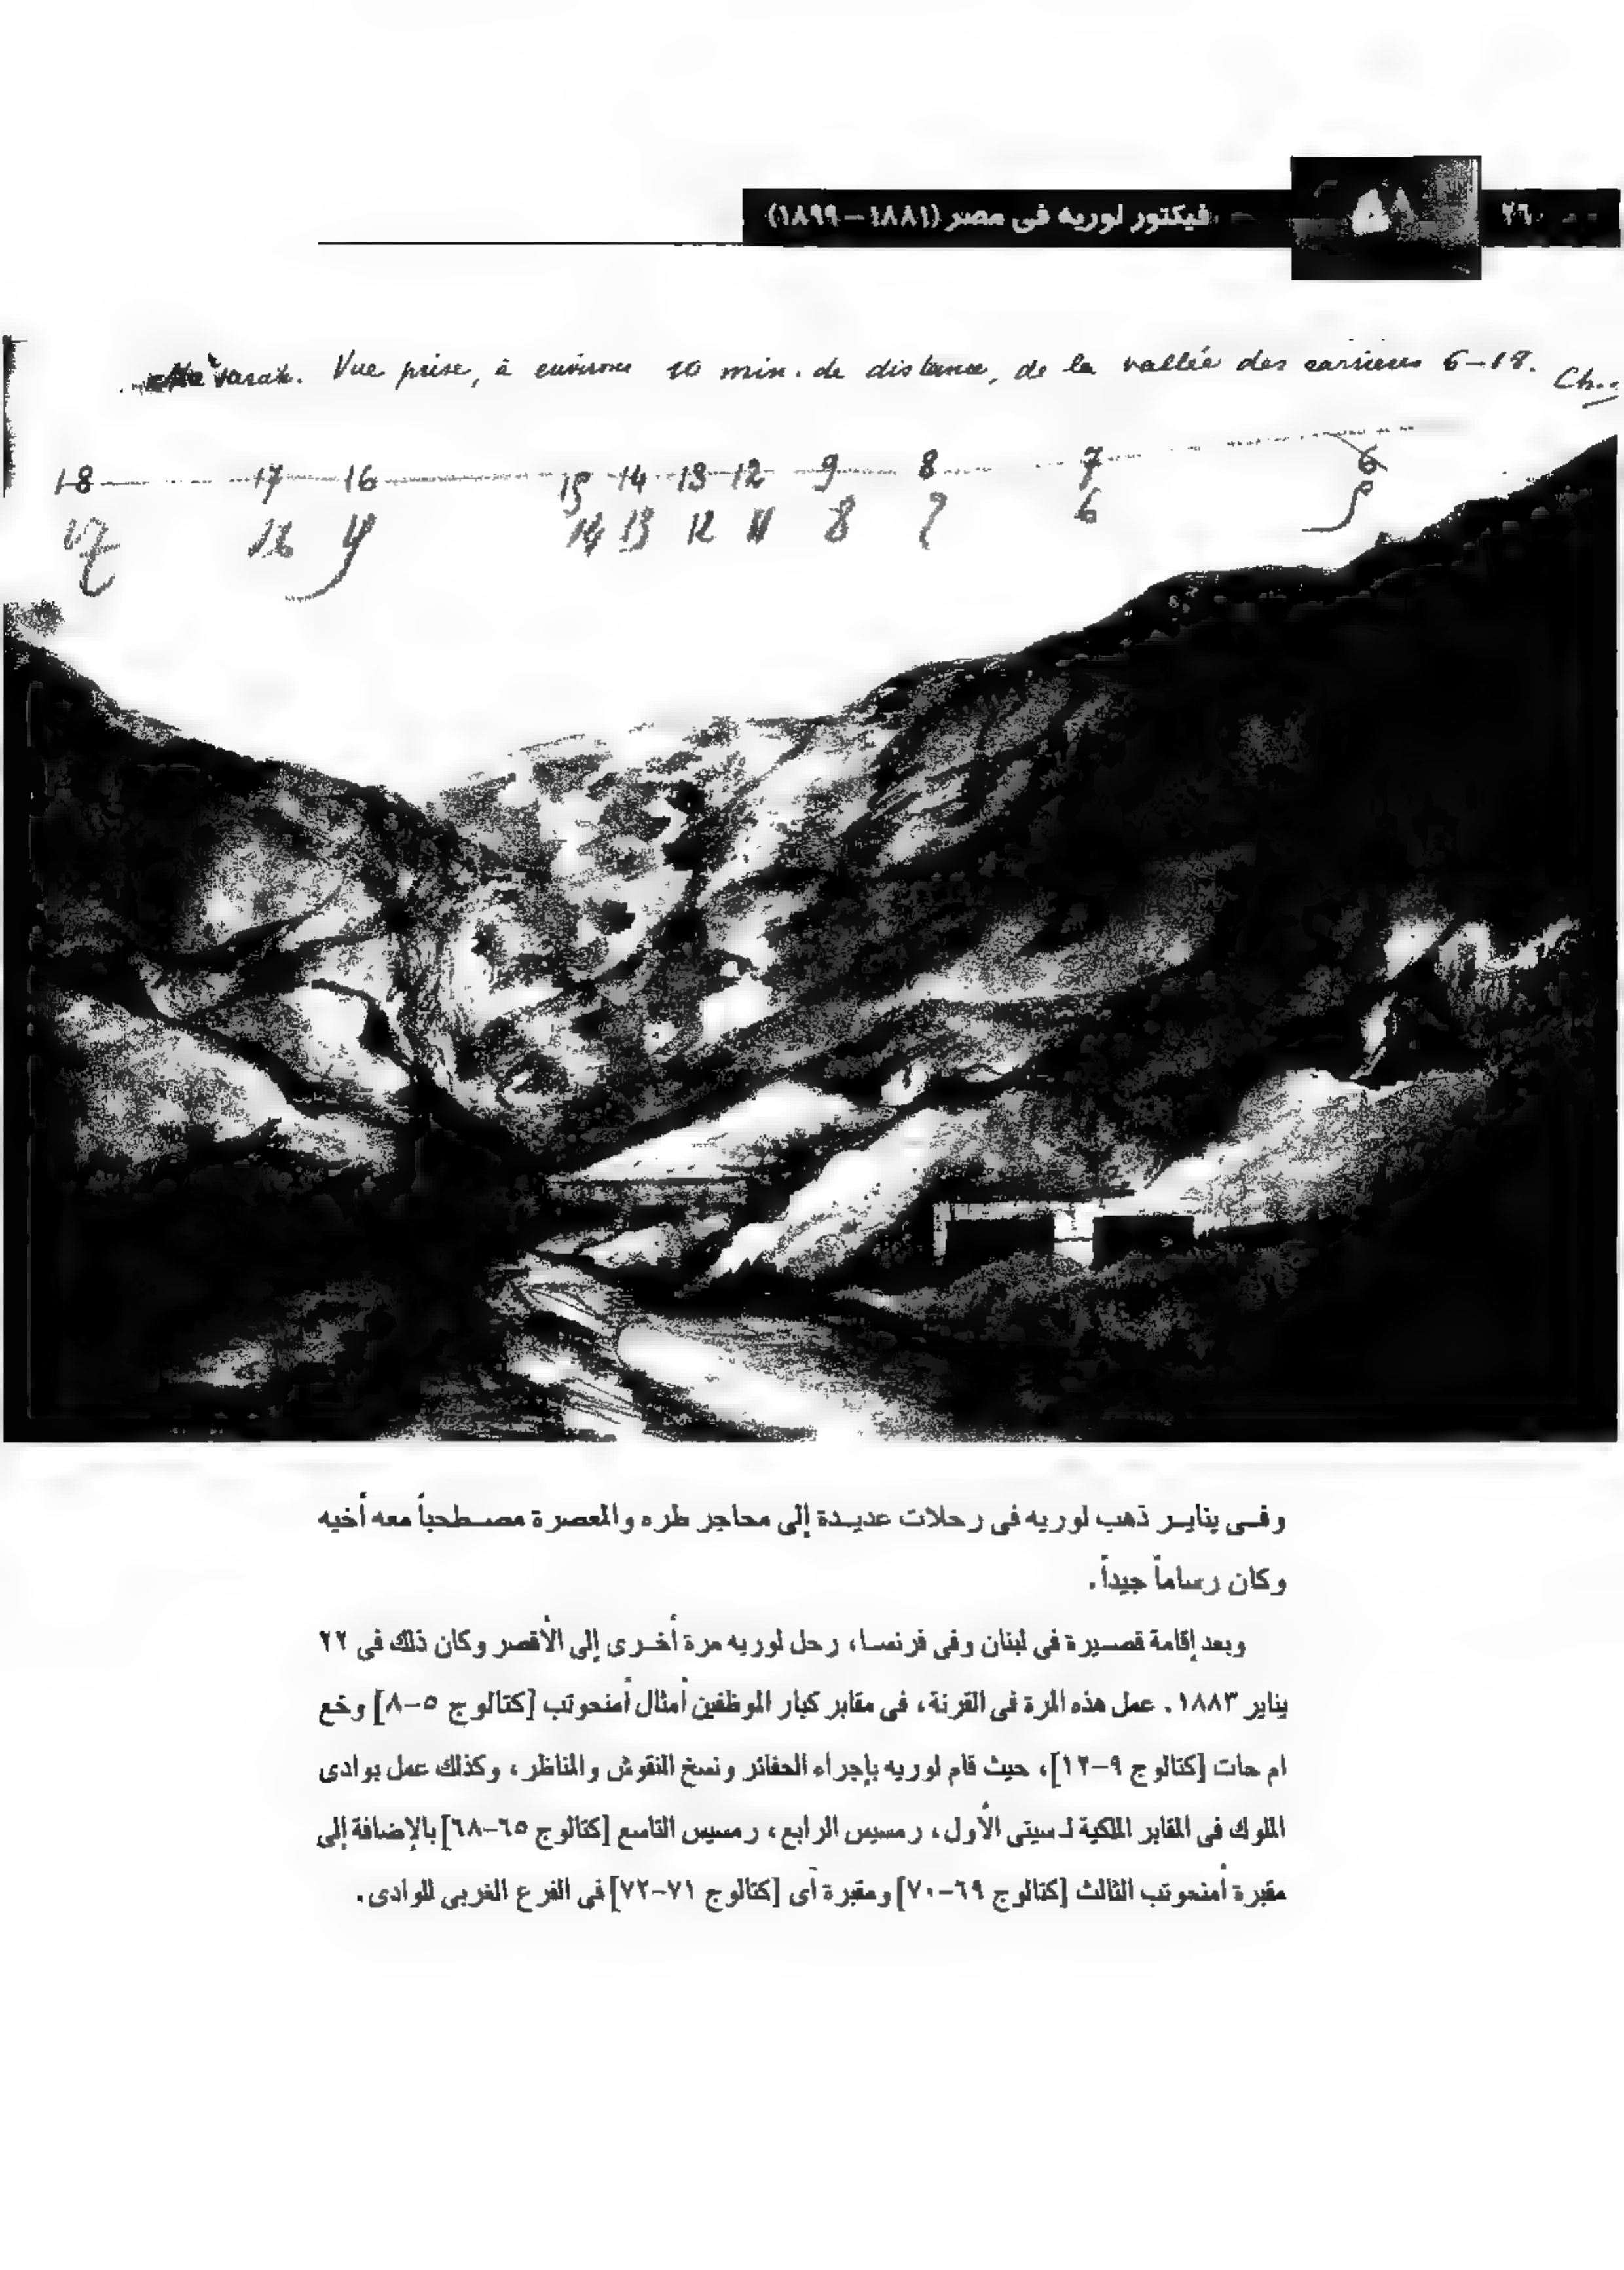 ٢٦
فيكتور لوريه فى مصر (١٨٨١ – ١٨٩٩)
Vue prise, à environ 10 min. de distance, de la vallée des carrières 6–18. Ch.
18 17 16 15 14 13 12 9 8 7 6
17 16 14 13 12 11 8 6
وفى يناير ذهب لوريه فى رحلات عديدة إلى محاجر طره والمعصرة مصطحباً معه أخيه
وكان رساماً جيداً.
وبعد إقامة قصيرة فى لبنان وفى فرنسا، رحل لوريه مرة أخرى إلى الأقصر وكان ذلك فى ٢٢
يناير ١٨٨٣. عمل هذه المرة فى القرنة، فى مقابر كبار الموظفين أمثال أمنحوتب [كتالوج ٥–٨] وخع
ام حات [كتالوج ٩–١٢]، حيث قام لوريه بإجراء الحفائر ونسخ النقوش والمناظر، وكذلك عمل بوادى
الملوك فى المقابر الملكية لـ سيتى الأول، رمسيس الرابع، رمسيس التاسع [كتالوج ٦٥–٦٨] بالإضافة إلى
مقبرة أمنحوتب الثالث [كتالوج ٦٩–٧٠] ومقبرة آى [كتالوج ٧١–٧٢] فى الفرع الغربى للوادى.